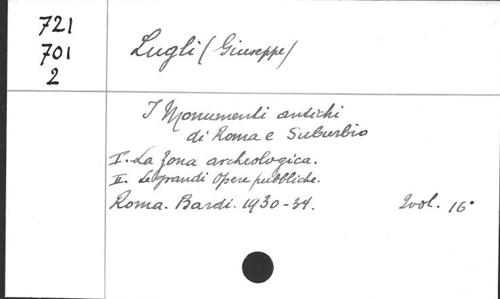 721
701
2
Lugli (Giuseppe)
I Monumenti antichi
di Roma e Suburbio
I. La Zona archeologica.
II. Le grandi Opere pubbliche.
Roma. Bardi. 1930-34. 2 vol. 16°